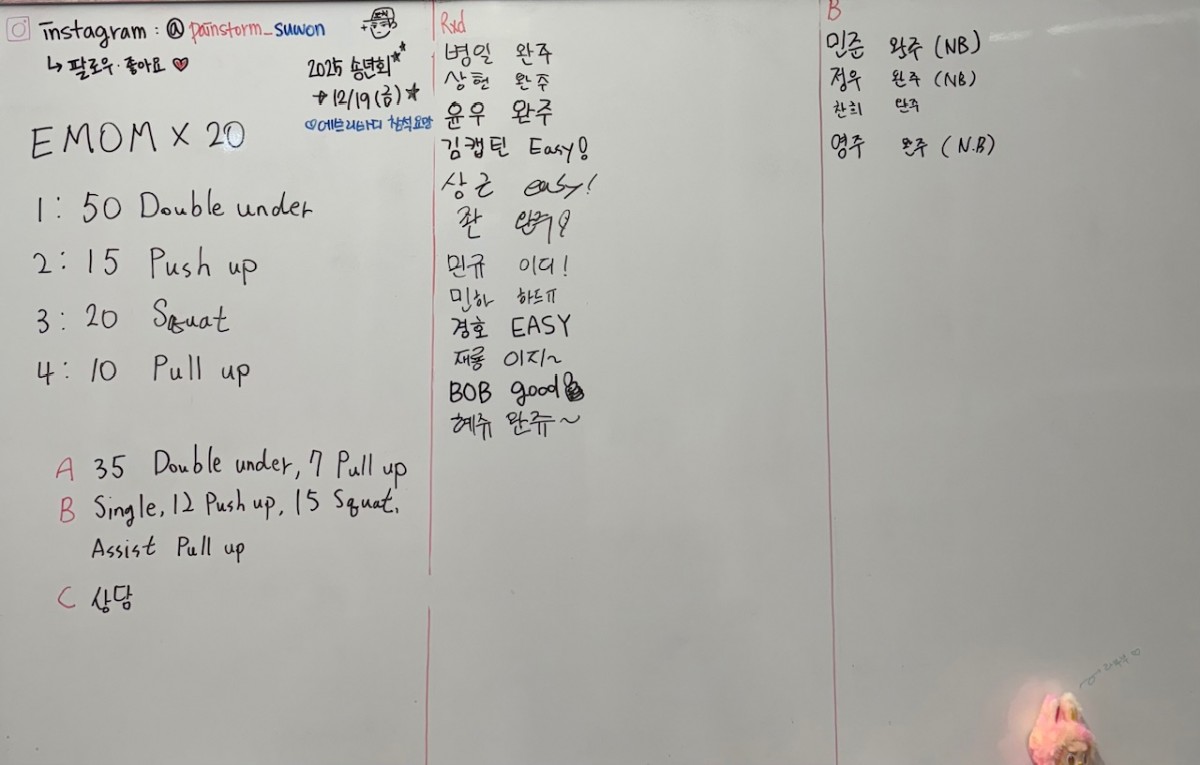 instagram : @ painstorm_suwon
↳ 팔로우·좋아요 ♥
2025 송년회
12/19 (금)
♡에브리바디 참석요망
EMOM X 20
1 : 50 Double under
2 : 15 Push up
3 : 20 Squat
4 : 10 Pull up
A 35 Double under, 7 Pull up
B Single, 12 Push up, 15 Squat,
Assist Pull up
C 상담
Rxd
병일 완주
상현 완주
윤우 완주
김캡틴 Easy!
상근 easy!
좐 완주!
민규 이디!
민하 하드ㅠ
경호 EASY
재룡 이지~
BOB good
혜쥬 완쥬~
B
민준 완주 (NB)
정우 완주 (NB)
찬희 완주
영주 완주 (N.B)